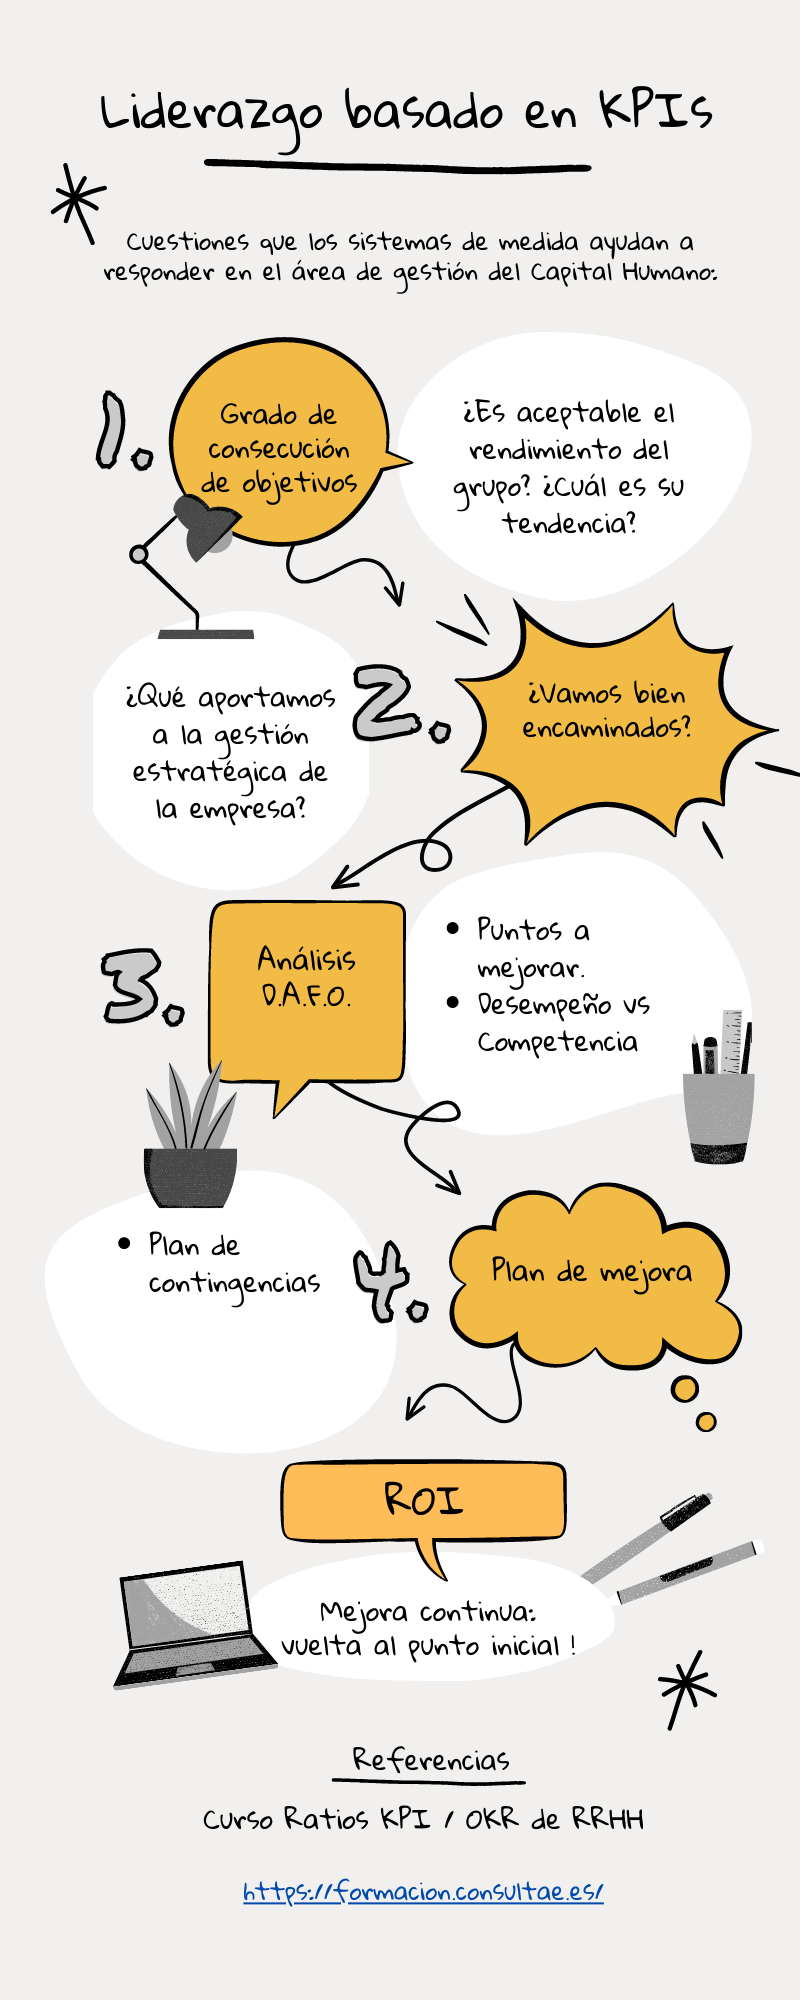 Liderazgo basado en KPIs
Cuestiones que los sistemas de medida ayudan a
responder en el área de gestión del Capital Humano:
1.
Grado de
consecución
de objetivos
¿Es aceptable el
rendimiento del
grupo? ¿Cuál es su
tendencia?
2.
¿Vamos bien
encaminados?
¿Qué aportamos
a la gestión
estratégica de
la empresa?
3.
Análisis
D.A.F.O.
• Puntos a
mejorar.
• Desempeño vs
Competencia
4.
Plan de mejora
• Plan de
contingencias
ROI
Mejora continua:
vuelta al punto inicial !
Referencias
Curso Ratios KPI / OKR de RRHH
https://formacion.consultae.es/